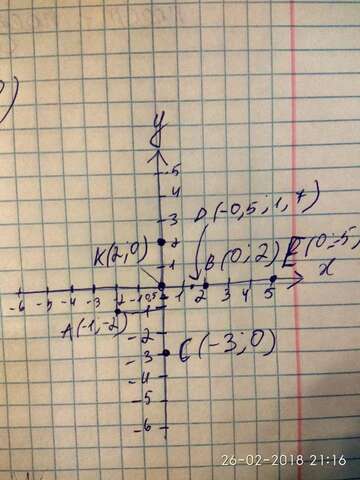 y
5
4
3
2
1
D(-0,5; 1,7)
K(2;0)
B(0;2)
E(0;5)
x
-6 -5 -4 -3 -2 -1 0,5 1 2 3 4 5
A(-1,-2)
-1
-2
-3
C(-3;0)
-4
-5
-6
26-02-2018 21:16